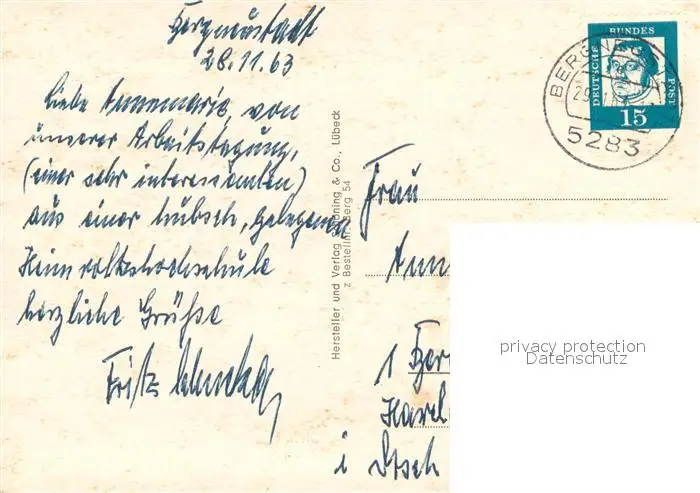 Bergneustadt
28.11.63
Liebe Annemarie, von
unserer Arbeitstagung,
(einer sehr interessanten)
aus einer hübsch gelegenen
Heimvolkshochschule
herzliche Grüße
Fritz
Hersteller und Verlag Schöning & Co., Lübeck
z Bestellnr. Berg 54
DEUTSCHE BUNDESPOST
15
5283
Frau
1
i
privacy protection
Datenschutz